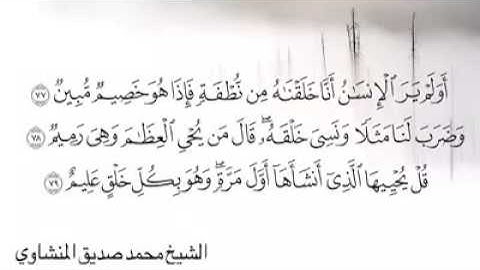 أَوَلَمْ يَرَ ٱلْإِنسَٰنُ أَنَّا خَلَقْنَٰهُ مِن نُّطْفَةٍ فَإِذَا هُوَ خَصِيمٌ مُّبِينٌ ٧٧
وَضَرَبَ لَنَا مَثَلًا وَنَسِىَ خَلْقَهُۥ ۖ قَالَ مَن يُحْىِ ٱلْعِظَٰمَ وَهِىَ رَمِيمٌ ٧٨
قُلْ يُحْيِيهَا ٱلَّذِىٓ أَنشَأَهَآ أَوَّلَ مَرَّةٍ ۖ وَهُوَ بِكُلِّ خَلْقٍ عَلِيمٌ ٧٩
الشيخ محمد صديق المنشاوي